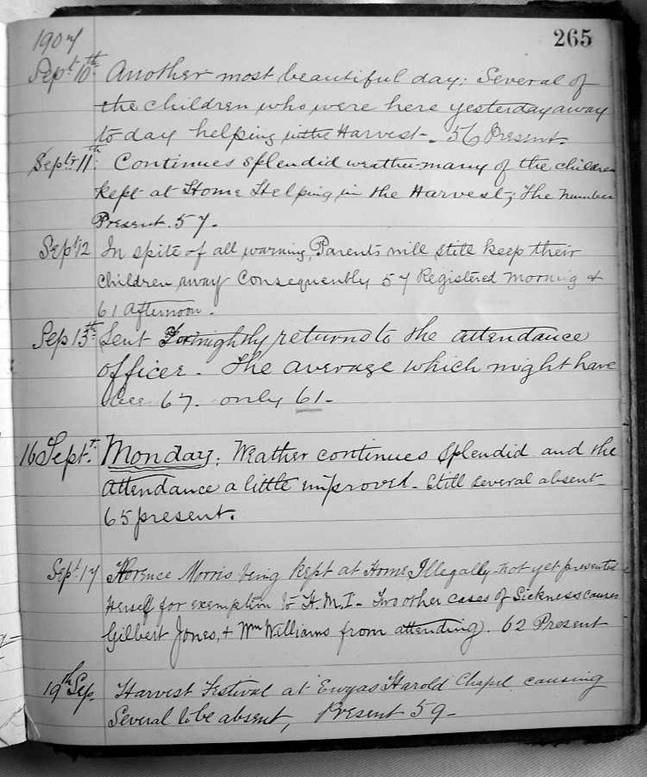 1907
265
Sept 10th Another most beautiful day; Several of
the children who were here yesterday away
to day helping in the Harvest-. 56 Present.
Septr 11th Continues splendid weather many of the children
kept at Home Helping in the Harvest; The number
Present. 57.
Sept 12 In spite of all warning, Parents will still keep their
children away Consequently 57 Registered Morning &
61 Afternoon.
Sep 13th Sent Fortnightly returns to the attendance
officer. The average which might have
been 67. only 61.
16 Sept. Monday; Weather continues splendid and the
attendance a little improved. Still several absent-
65 present.
Sept 17 Florence Morris being kept at Home Illegally- not yet presented
herself for exemption to H.M.I- Two other cases of Sickness causes
Gilbert Jones, & Wm Williams from attending. 62 Present
19th Sep. Harvest Festival at Ewyas Harold Chapel causing
Several to be absent, Present 59-